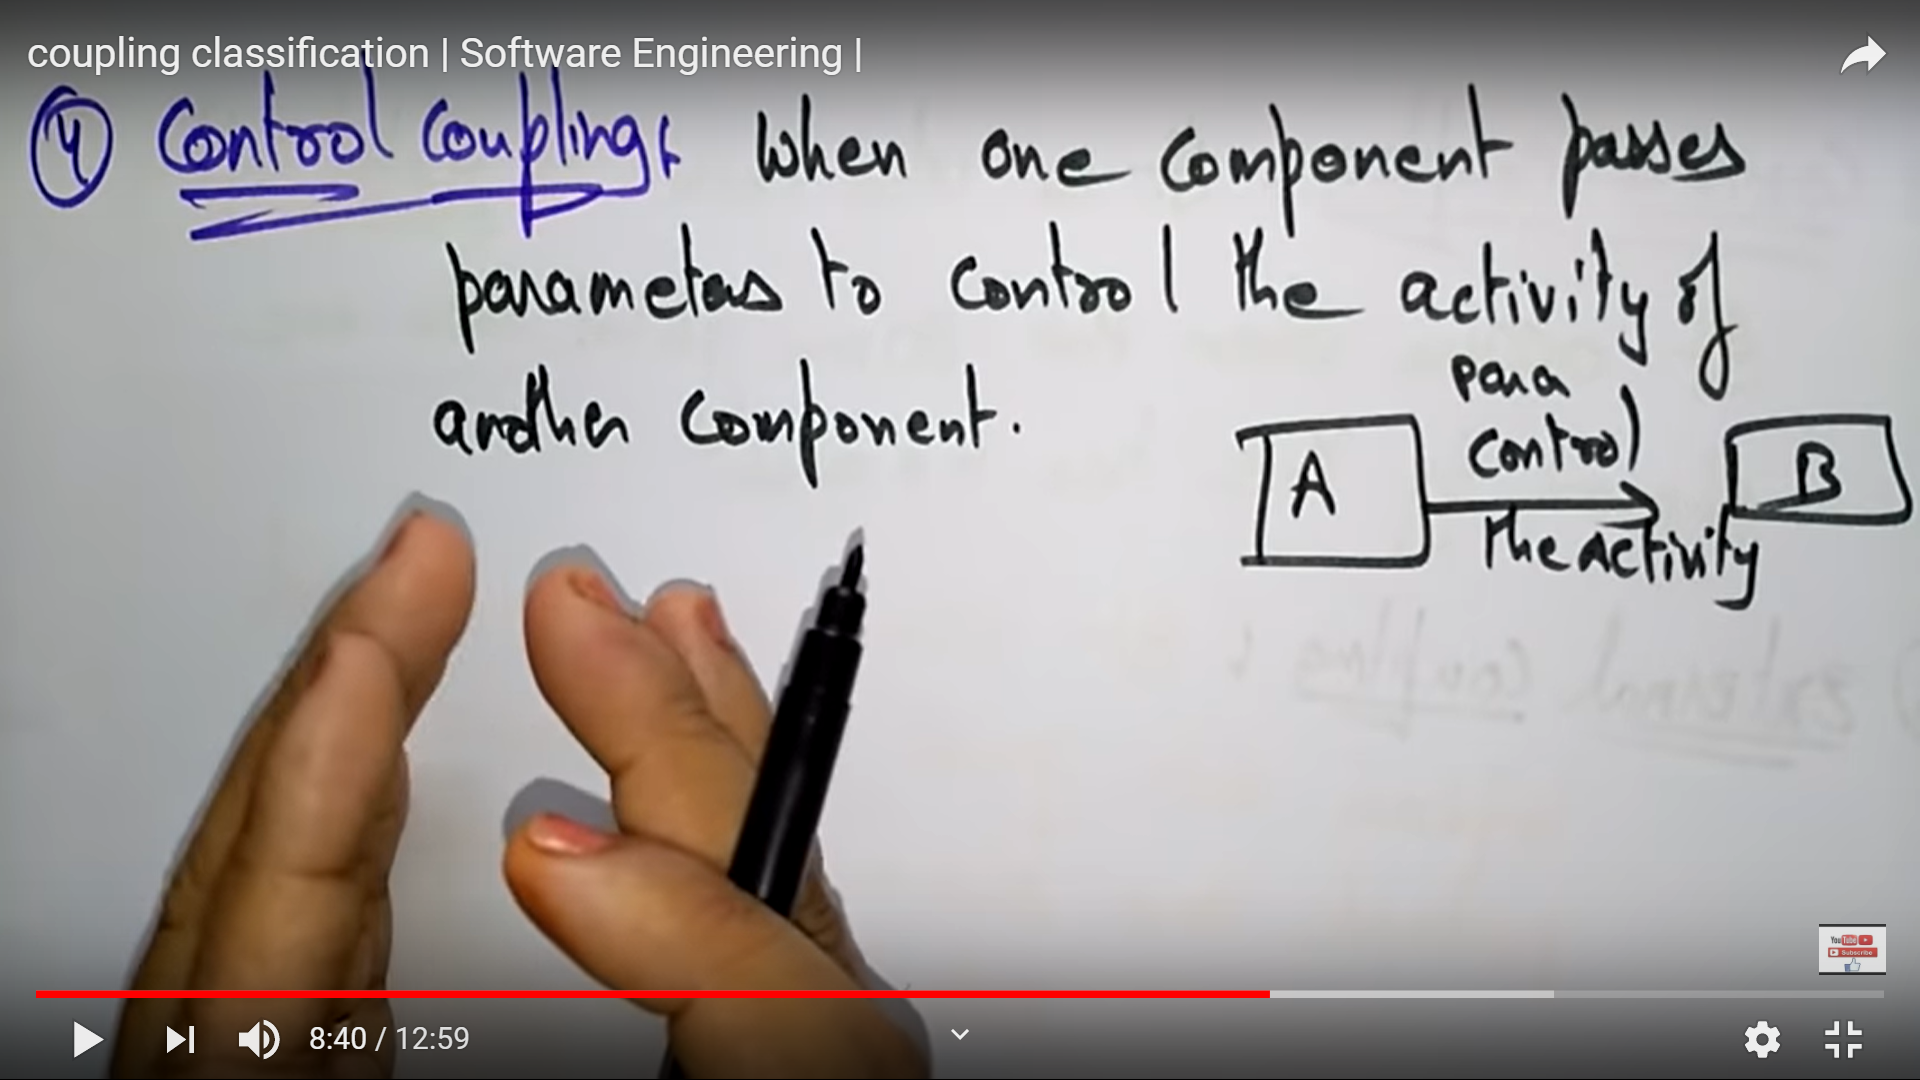 coupling classification | Software Engineering |
④ Control Coupling: When one component passes
parameters to control the activity of
another component.
para
control
A
B
the activity
external coupling :
YouTube
Subscribe
8:40 / 12:59